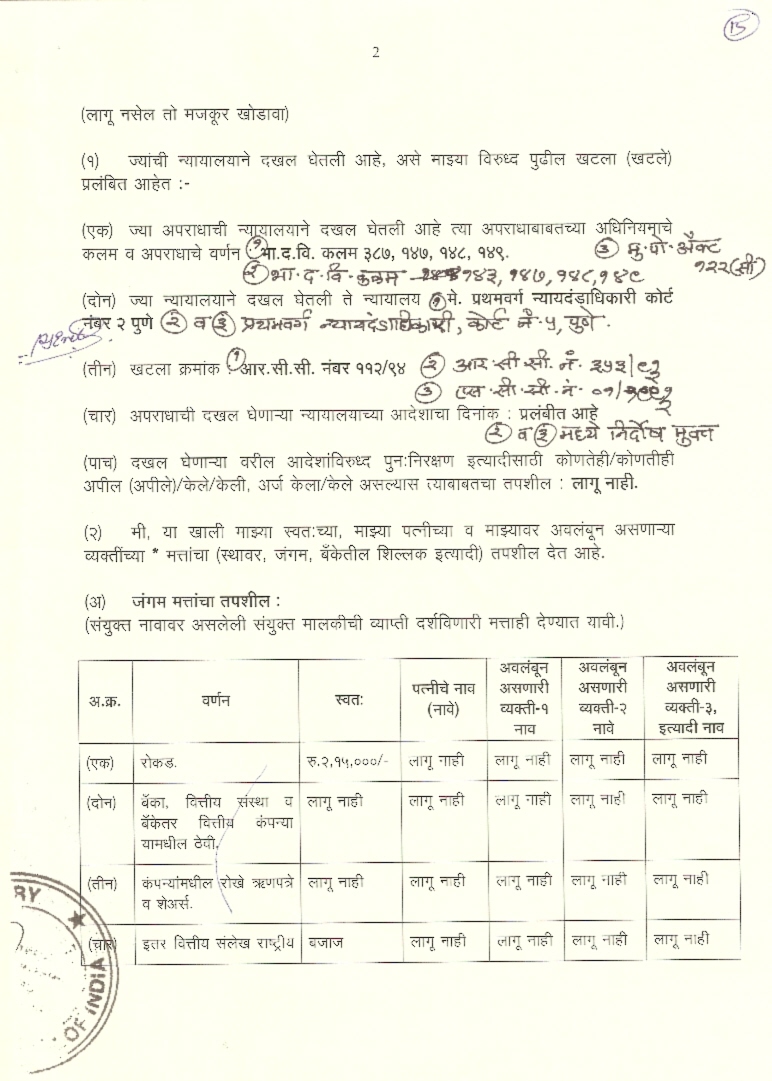 15
2
(लागू नसेल तो मजकूर खोडावा)
(१) ज्यांची न्यायालयाने दखल घेतली आहे, असे माझ्या विरुध्द पुढील खटला (खटले)
प्रलंबित आहेत :-
(एक) ज्या अपराधाची न्यायालयाने दखल घेतली आहे त्या अपराधाबाबतच्या अधिनियमाचे
कलम व अपराधाचे वर्णन : १ भा.द.वि. कलम ३८७, १४७, १४८, १४९. ३ मु.पो.ॲक्ट
१२२(सी)
२ भा.द.वि. कलम १४३, १४७, १४८, १४९
(दोन) ज्या न्यायालयाने दखल घेतली ते न्यायालय १ मे. प्रथमवर्ग न्यायदंडाधिकारी कोर्ट
नंबर २ पुणे २ व ३ प्रथमवर्ग न्यायदंडाधिकारी, कोर्ट नं. ५, पुणे.
(तीन) खटला क्रमांक : १ आर.सी.सी. नंबर ११२/९४ २ आर.सी.सी. नं. ३५३/९२
३ एस.सी.सी. नं. ०१/
(चार) अपराधाची दखल घेणाऱ्या न्यायालयाच्या आदेशाचा दिनांक : प्रलंबीत आहे
२ व ३ मध्ये निर्दोष मुक्त
(पाच) दखल घेणाऱ्या वरील आदेशांविरुध्द पुन:निरक्षण इत्यादीसाठी कोणतेही/कोणतीही
अपील (अपीले)/केले/केली, अर्ज केला/केले असल्यास त्याबाबतचा तपशील : लागू नाही.
(२) मी, या खाली माझ्या स्वत:च्या, माझ्या पत्नीच्या व माझ्यावर अवलंबून असणाऱ्या
व्यक्तींच्या * मत्तांचा (स्थावर, जंगम, बँकेतील शिल्लक इत्यादी) तपशील देत आहे.
(अ) जंगम मत्तांचा तपशील :
(संयुक्त नावावर असलेली संयुक्त मालकीची व्याप्ती दर्शविणारी मत्ताही देण्यात यावी.)
अ.क्र. वर्णन स्वत: पत्नीचे नाव (नावे) अवलंबून असणारी व्यक्ती-१ नाव अवलंबून असणारी व्यक्ती-२ नावे अवलंबून असणारी व्यक्ती-३, इत्यादी नाव
(एक) रोकड. रु.२,१५,०००/- लागू नाही लागू नाही लागू नाही लागू नाही
(दोन) बॅका, वित्तीय संस्था व लागू नाही लागू नाही लागू नाही लागू नाही लागू नाही
बॅकेतर वित्तीय कंपन्या
यामधील ठेवी.
(तीन) कंपन्यांमधील रोखे ऋणपत्रे लागू नाही लागू नाही लागू नाही लागू नाही लागू नाही
व शेअर्स.
(चार) इतर वित्तीय संलेख राष्ट्रीय बजाज लागू नाही लागू नाही लागू नाही लागू नाही
RY
OF INDIA